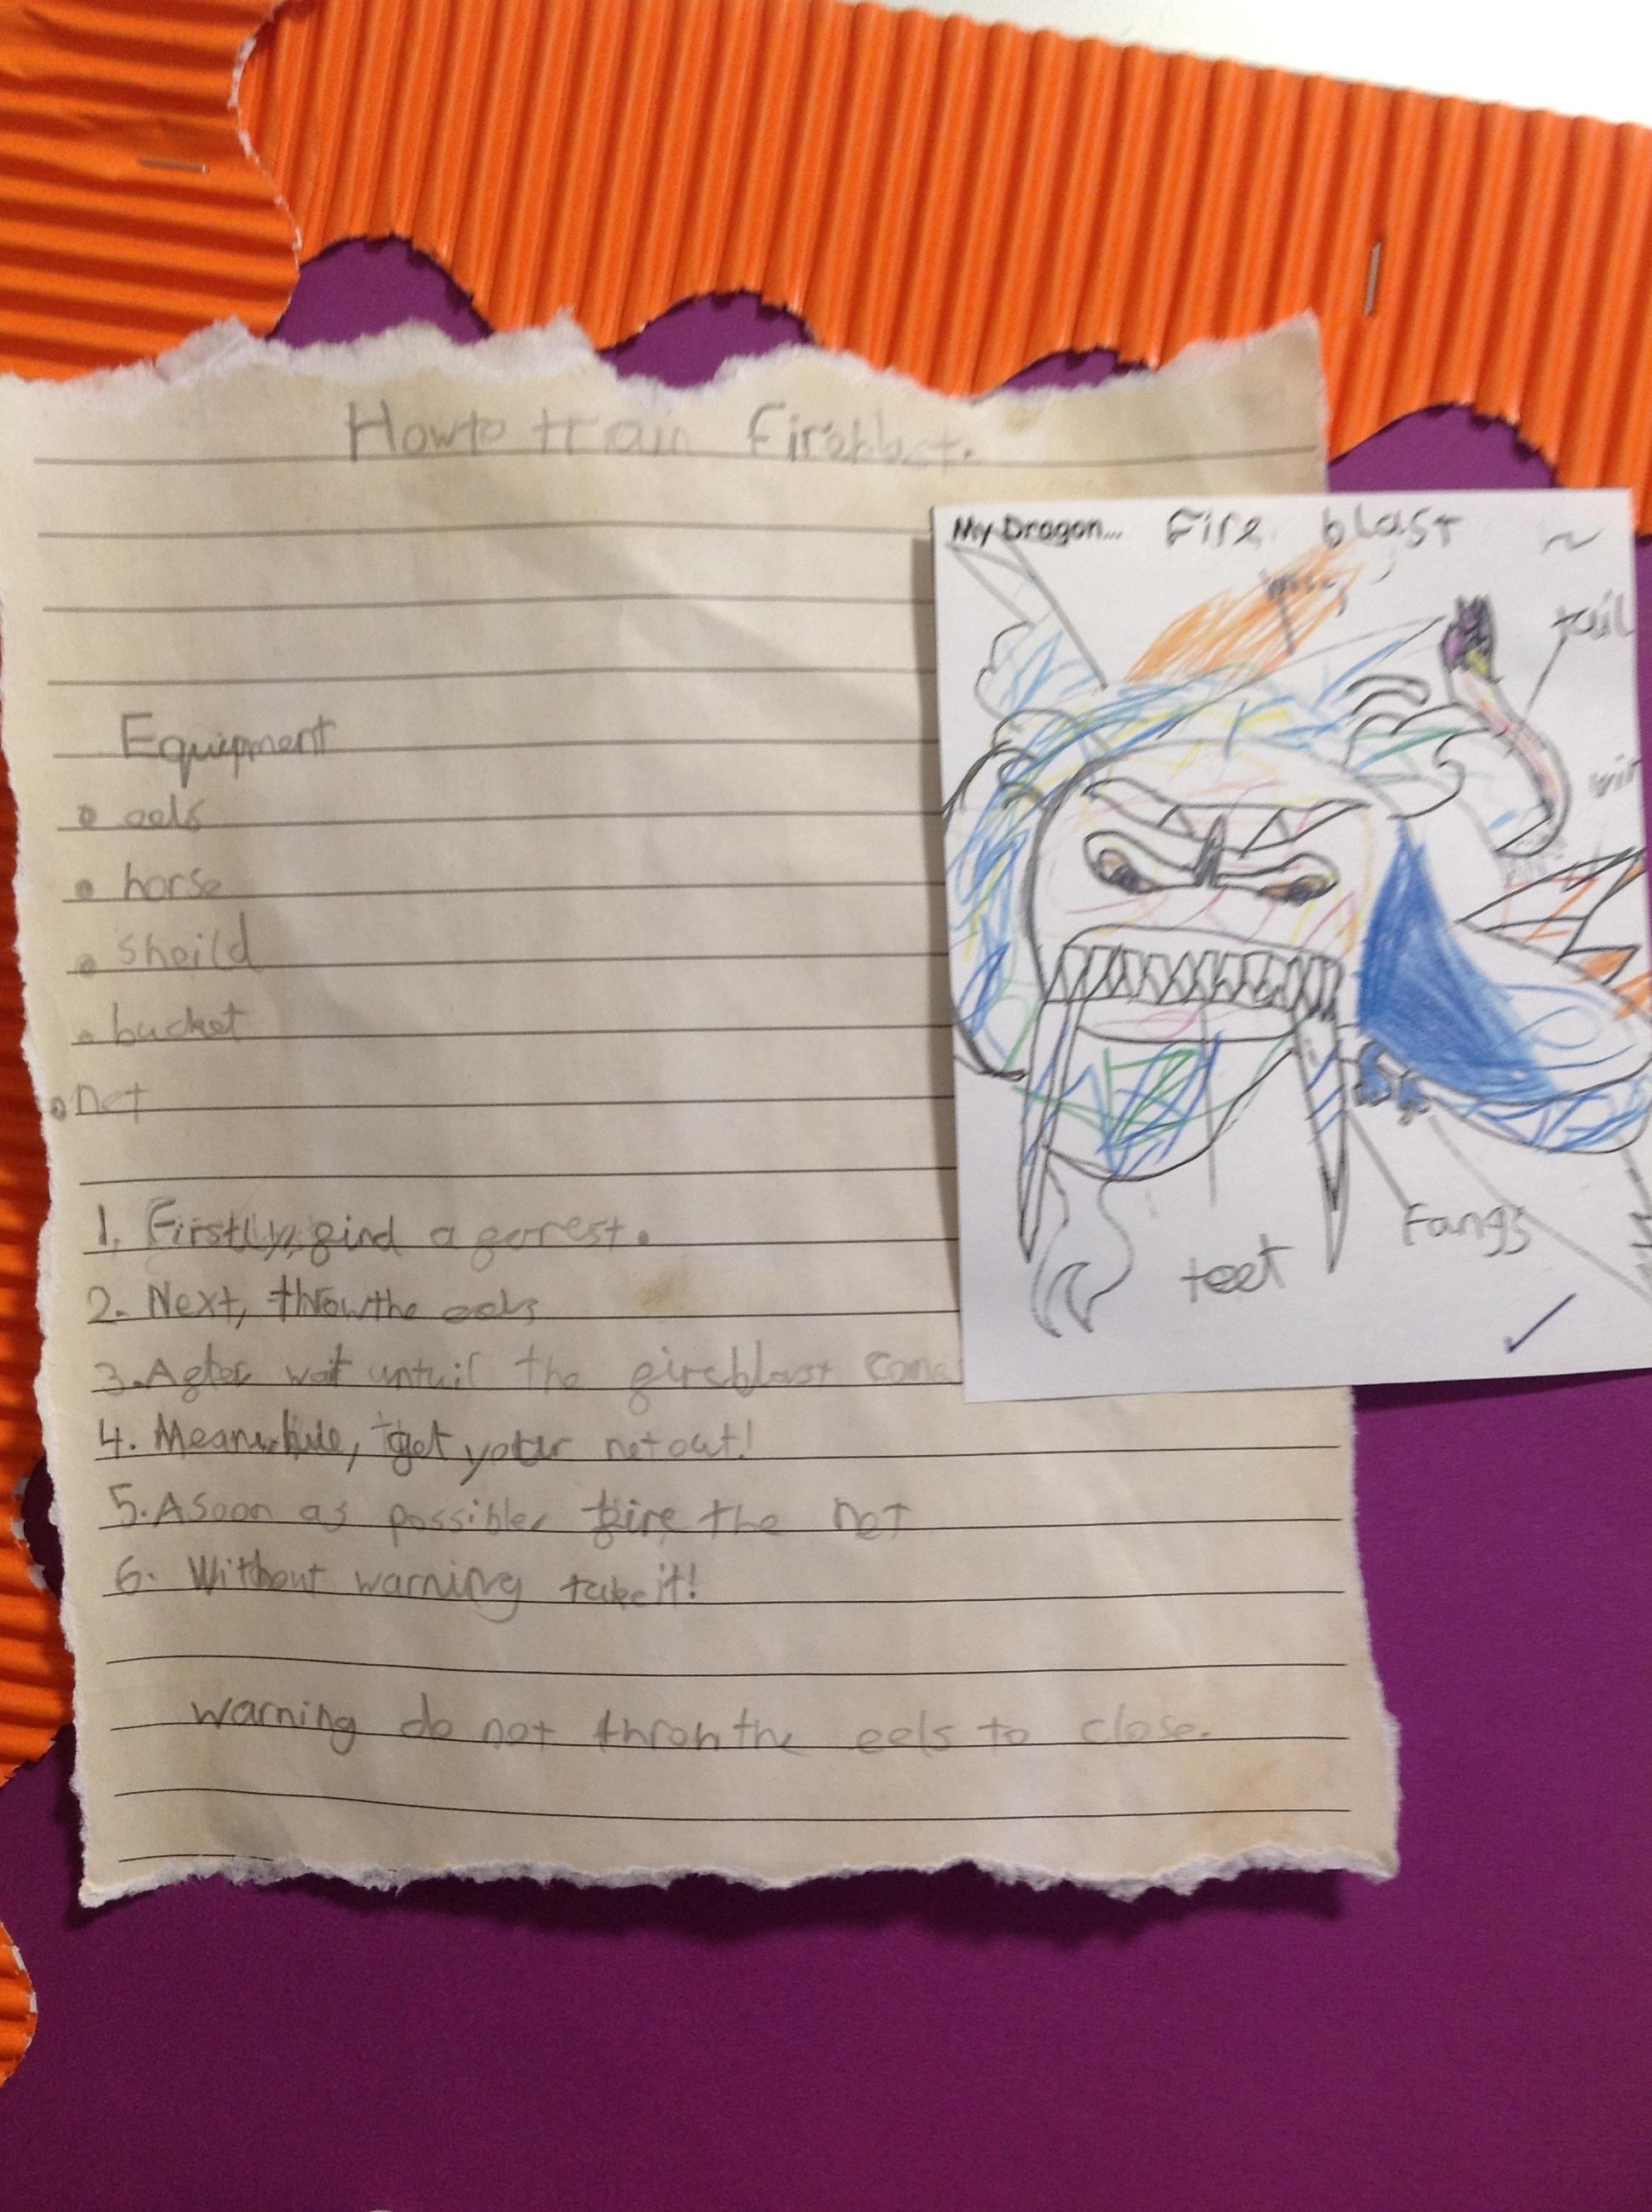 How to train Fireblast.
Equipment
eels
horse
sheild
bucket
net
1. Firstly, find a forest.
2. Next, throw the eels
3. After wait untuil the fireblast
4. Meanwhile, get your net out!
5. A soon as possible, fire the net
6. Without warning take it!
warning do not throh the eels to close.
My Dragon... Fire blast
wing
tail
Fangs
teet